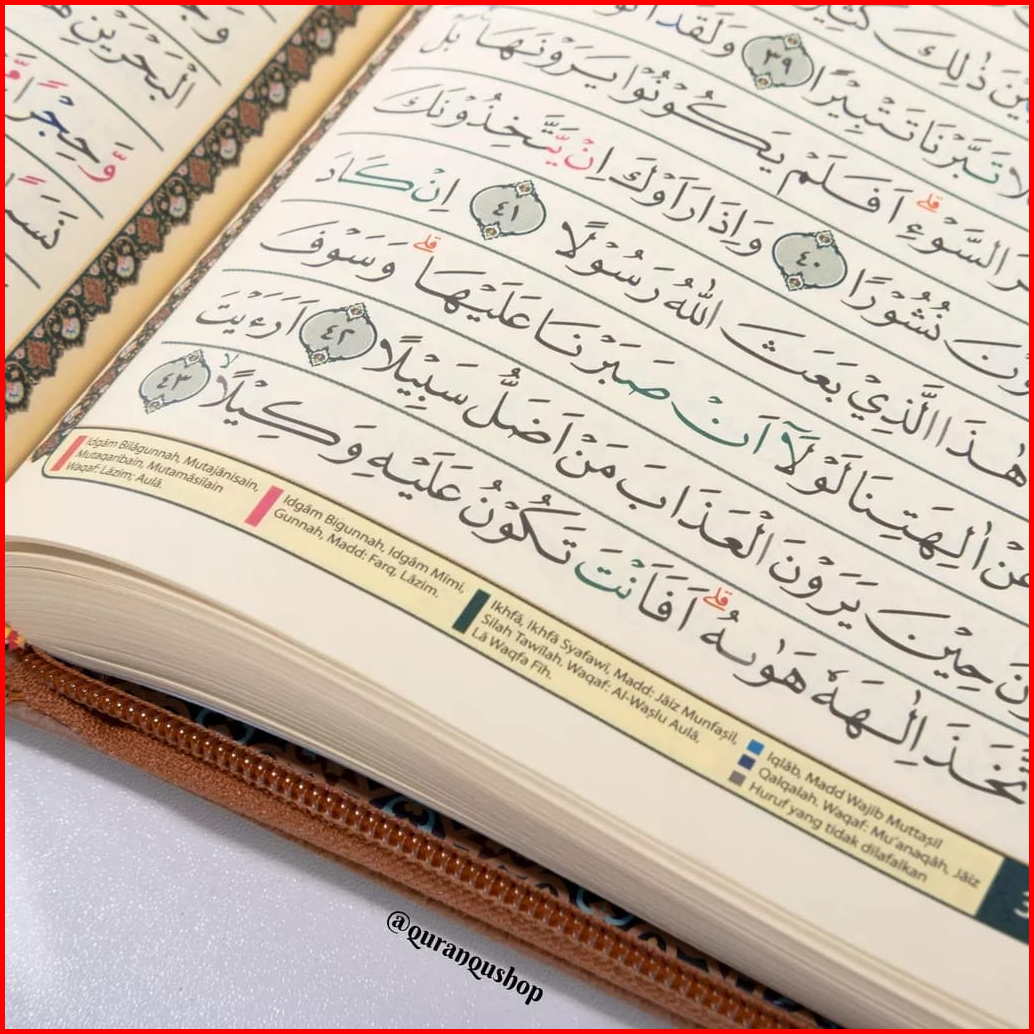 بَيْنَ ذٰلِكَ كَثِيْرًا
تَبَّرْنَا تَتْبِيْرًا ٣٩ وَلَقَدْ
السَّوْءِ ۗ اَفَلَمْ يَكُوْنُوْا يَرَوْنَهَا بَلْ
نُشُوْرًا ٤٠ وَاِذَا رَاَوْكَ اِنْ يَّتَّخِذُوْنَكَ
هٰذَا الَّذِيْ بَعَثَ اللّٰهُ رَسُوْلًا ٤١ اِنْ كَادَ
عَنْ اٰلِهَتِنَا لَوْلَآ اَنْ صَبَرْنَا عَلَيْهَا ۗ وَسَوْفَ
حِيْنَ يَرَوْنَ الْعَذَابَ مَنْ اَضَلُّ سَبِيْلًا ٤٢ اَرَءَيْتَ
اِلٰهَهٗ هَوٰىهُ ۗ اَفَاَنْتَ تَكُوْنُ عَلَيْهِ وَكِيْلًا ۙ ٤٣
الْبَحْرَيْنِ
وَّحِجْرًا
نَسَبًا
Idgām Bilāgunnah, Mutajānisain,
Mutaqaribain, Mutamāsilain
Waqaf: Lāzim, Aulā.
Idgām Bigunnah, Idgām Mimi,
Gunnah, Madd: Farq, Lāzim.
Ikhfā, Ikhfā Syafawi, Madd: Jāiz Munfaṣil,
Silah Ṭawīlah. Waqaf: Al-Waṣlu Aulā,
Lā Waqfa Fīh.
Iqlāb, Madd Wajib Muttaṣil
Qalqalah. Waqaf: Mu'anaqāh, Jāiz
Huruf yang tidak dilafalkan
@quranqushop